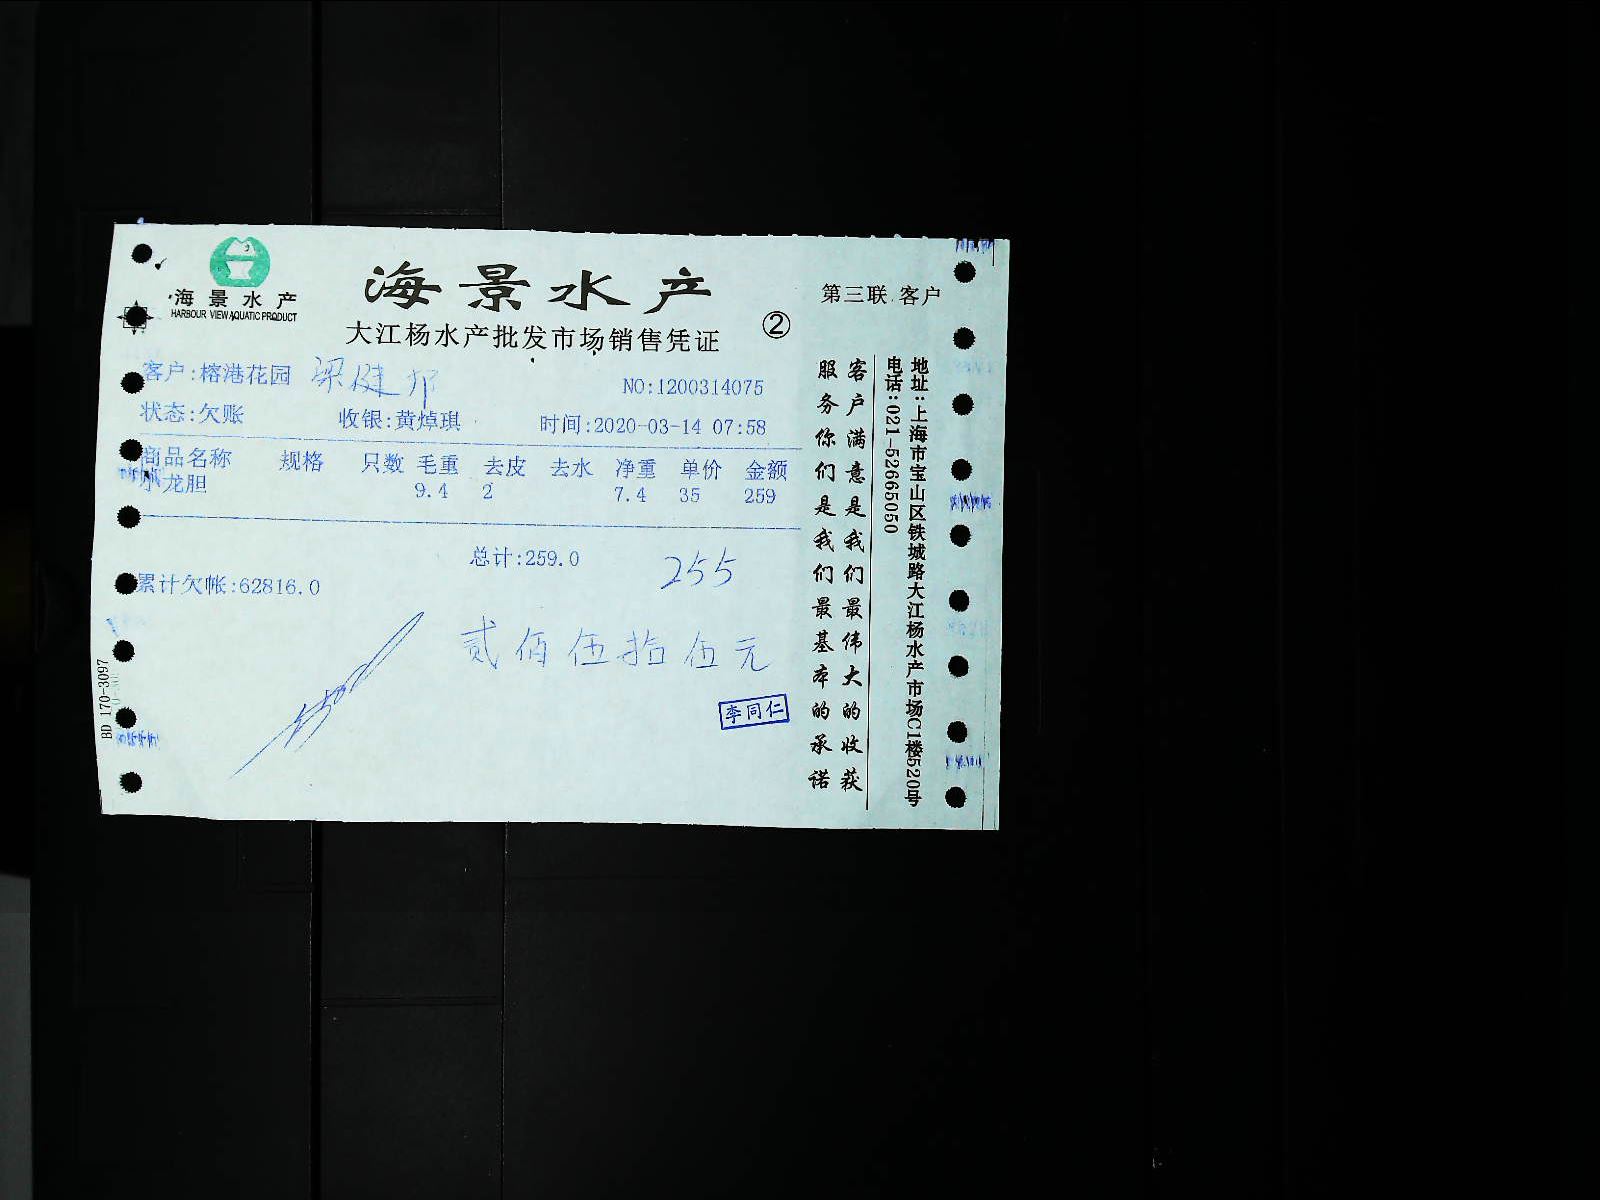 海景水产
HARBOUR VIEW AQUATIC PRODUCT
海景水产
大江杨水产批发市场销售凭证
②
第三联 客户
客户:榕港花园 梁健邦
NO:1200314075
状态:欠账 收银:黄焯琪 时间:2020-03-14 07:58
商品名称 规格 只数 毛重 去皮 去水 净重 单价 金额
小龙胆 9.4 2 7.4 35 259
总计:259.0 255
累计欠帐:62816.0
贰佰伍拾伍元
李同仁
客户满意是我们最伟大的收获
服务你们是我们最基本的承诺
地址:上海市宝山区铁城路大江杨水产市场C1楼520号
电话:021-52665050
BD 170-3097